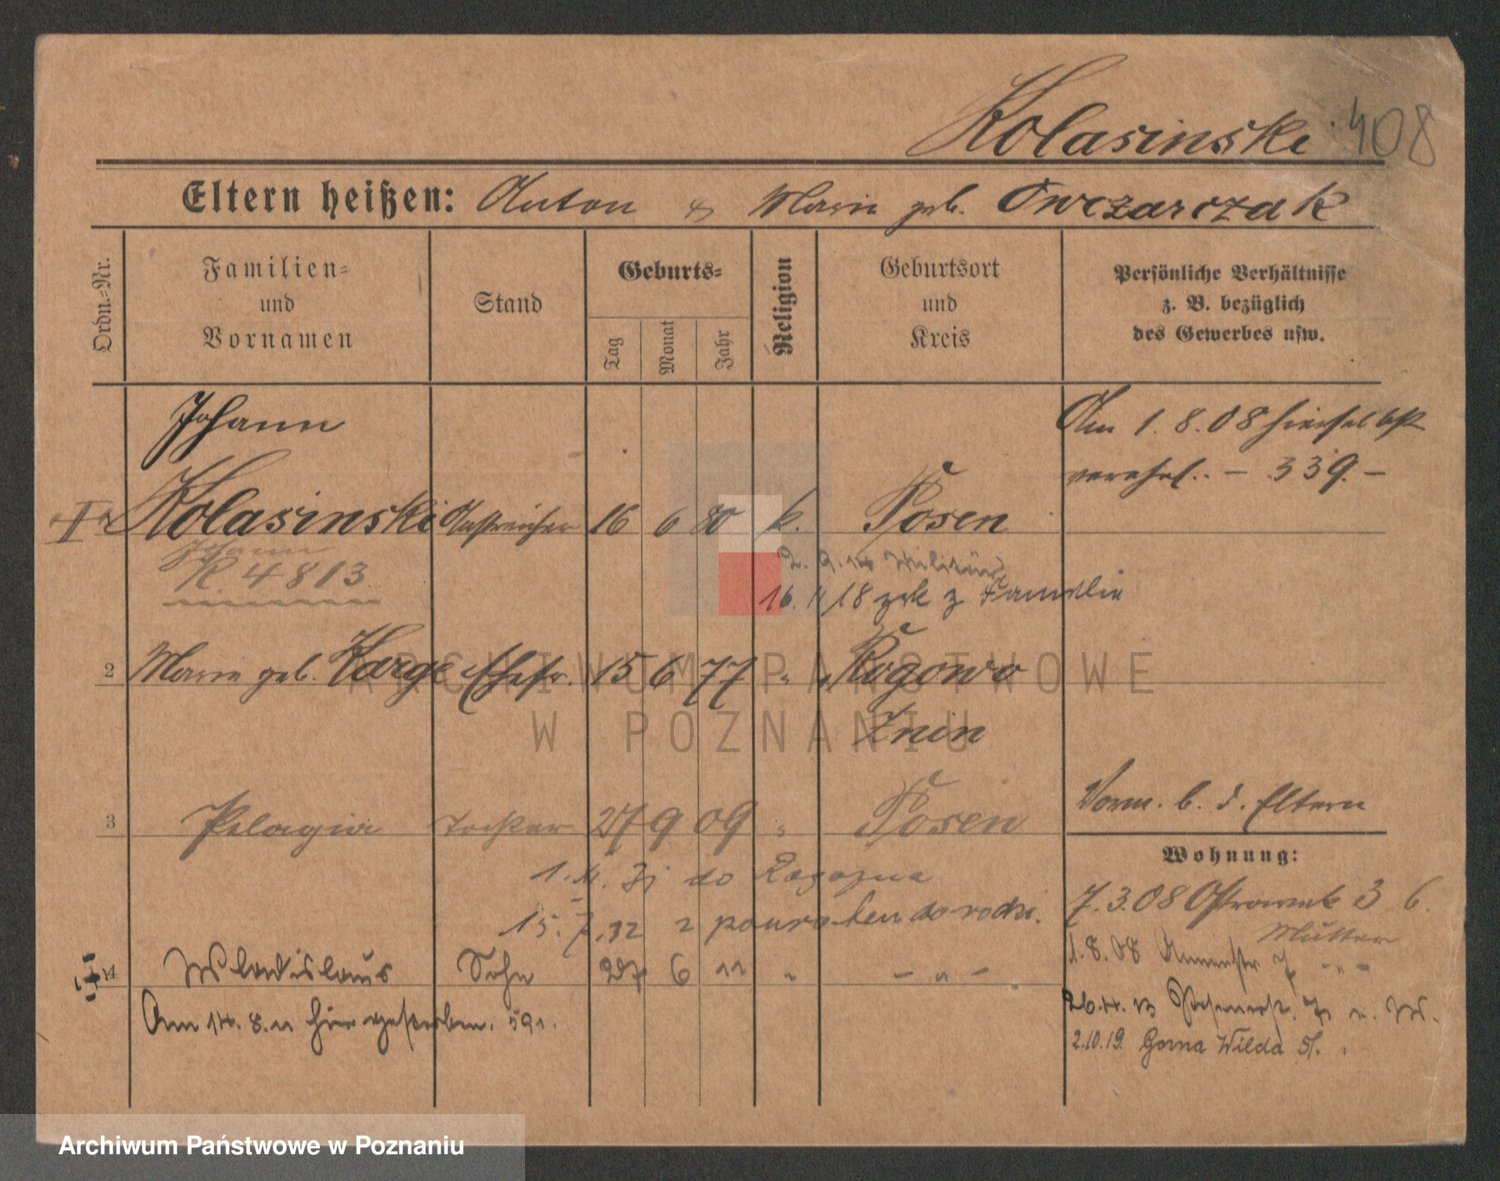 Kolasinski 408
Eltern heißen: Anton & Marie geb. Owczarczak
Ordn.-Nr.
Familien-
und
Vornamen
Stand
Geburts-
Tag
Monat
Jahr
Religion
Geburtsort
und
Kreis
Persönliche Verhältnisse
z. B. bezüglich
des Gewerbes usw.
Johann
Am 1.8.08 hierselbst
verehel. - 339. -
Kolasinski Anstreicher 16 6 80 k. Posen
Johann
R. 4813
Militär
16. 11/18 zrk z Familie
2 Marie geb. Karge Ehefr. 15 6 77 " Rogowo
Znin
Vorm. b. d. Eltern
3 Pelagia Tochter 27 9 09 " Posen
Wohnung:
1. 4. 31 do
15. 7. 32 z powrotem do rodz.
7.3.08 3 6.
Mutter
4 Wladislaus Sohn 27 6 11 " - " -
1.8.08
Am 14.8.11 hier gestorben. 591.
2.10.19. Gorna Wilda 51.
ARCHIWUM PAŃSTWOWE
W POZNANIU
Archiwum Państwowe w Poznaniu